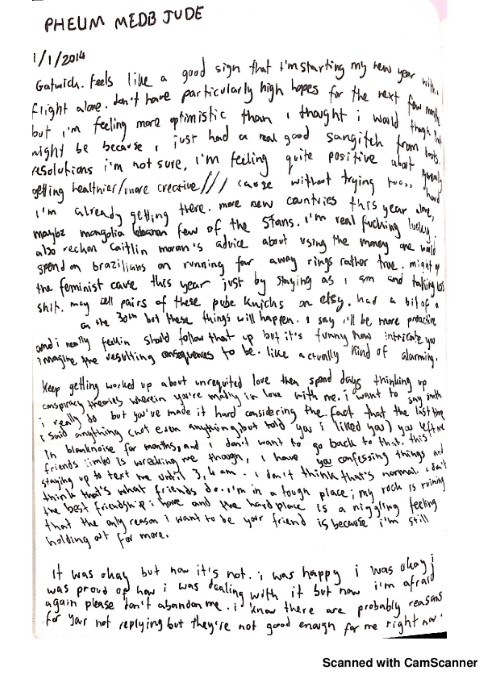 PHELIM MEDB JUDE
1/1/2014
Gatwick. Feels like a good sign that i'm starting my new year with
flight alone. don't have particularly high hopes for the next few months
but i'm feeling more optimistic than i thought i would though this
might be because i just had a real good sangitch from boots.
resolutions i'm not sure, i'm feeling quite positive about
getting healthier/more creative/// cause without trying too hard
i'm already getting there. more new countries this year
maybe mongolia few of the stans. i'm real fucking lucky i
also reckon caitlin moran's advice about using the money one would
spend on brazilians on running far away rings rather true. might
the feminist cause this year just by staying as i am and talking
shit. may sell pairs of these pube knicks on etsy. had a bit of a
on the 30th but these things will happen. i say i'll be more proactive
and i really should follow that up but it's funny how intricate you
imagine the resulting consequences to be. like actually kind of alarming.
Keep getting worked up about unrequited love then spend days thinking up
conspiracy theories wherein you're madly in love with me. i want to say
i really do but you've made it hard considering the fact that the last time
i said anything (not even anything but told you i liked you) you left me
in blanknoise for months, and i don't want to go back to that. this
friends limbo is wrecking me though, i have you confessing things and
staying up to text me until 3, 4 am. i don't think that's normal. i don't
think that's what friends do. i'm in a tough place; my rock is ruining
the best friendship i have and the hard place is a niggling feeling
that the only reason i want to be your friend is because i'm still
holding out for more.
It was okay but now it's not. i was happy i was okay i
was proud of how i was dealing with it but now i'm afraid
again please don't abandon me. i know there are probably reasons
for your not replying but they're not good enough for me right now.
Scanned with CamScanner